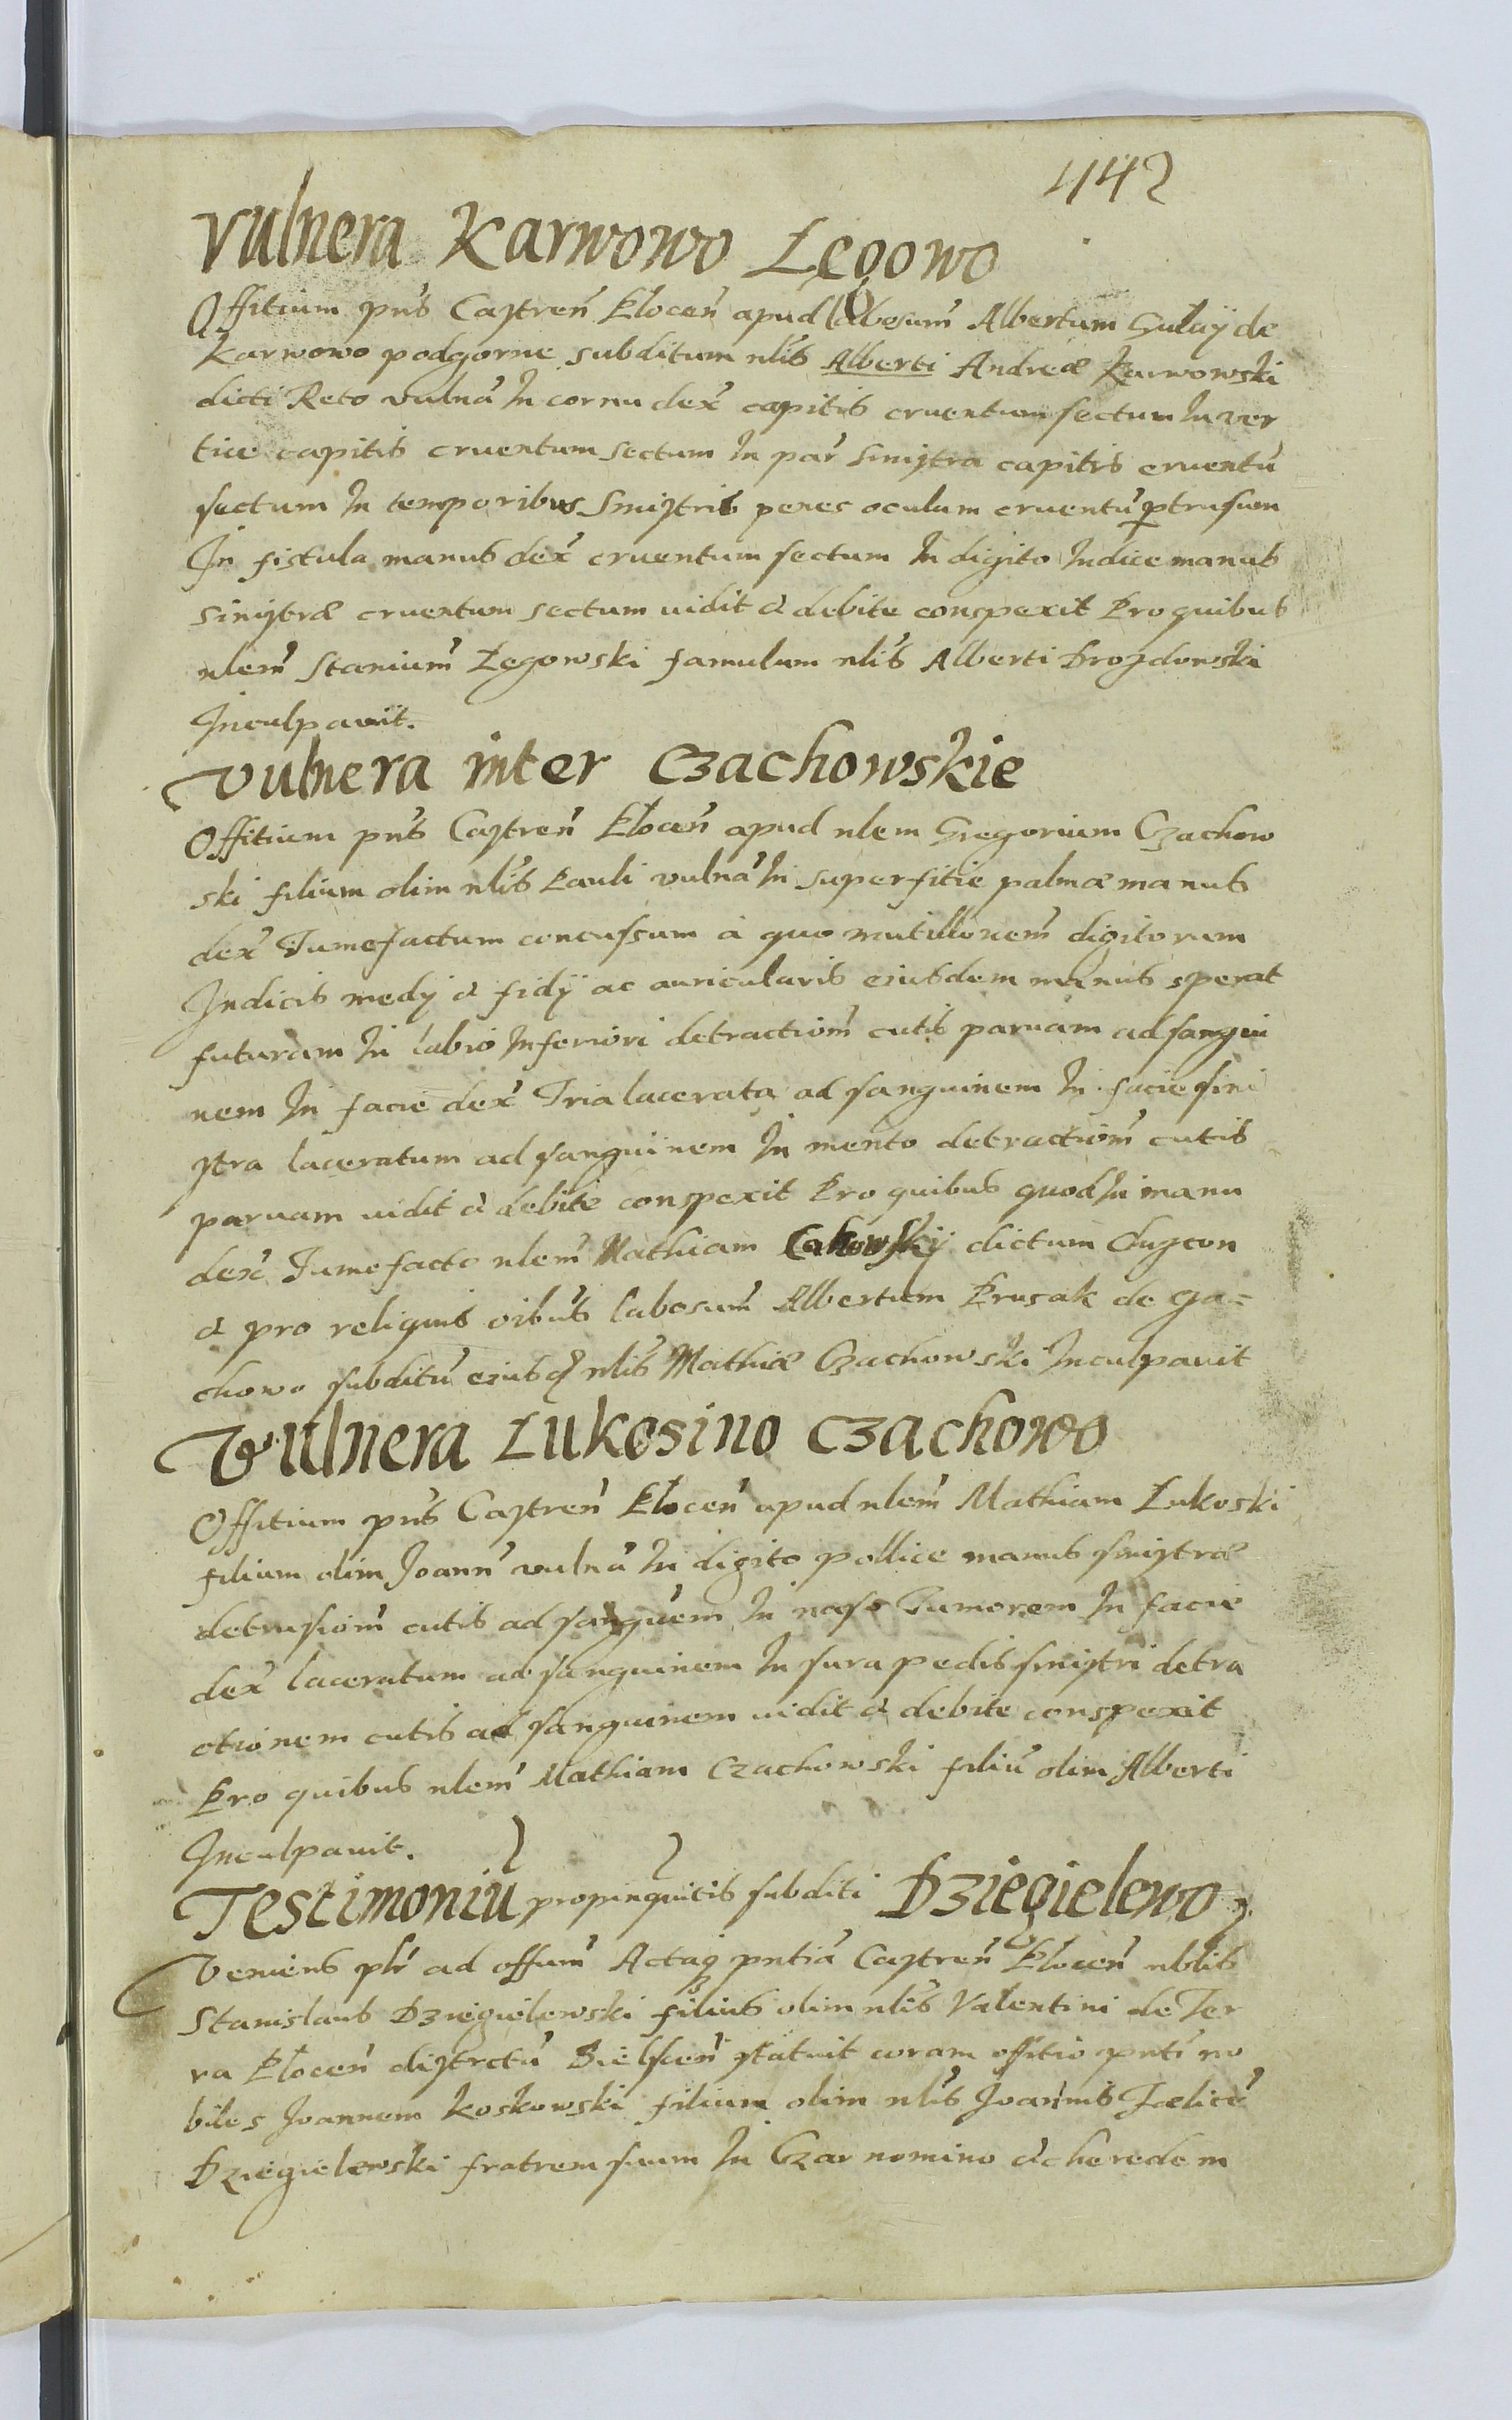 1142
Vulnera Karwowo Łęgowo
Offitium pns Castren Płocen apud labosum Albertum Gulaÿ de
Karwowo podgorne subditum nlis Alberti Andreæ Karwowski
dicti Reto vulna In cornu dex capitis cruentum sectum In ver
tice capitis cruentum sectum In par sinistra capitis cruentu
sectum In temporibus Sinistris penes oculum cruentu ptrusum
In fistula manus dex cruentum sectum In digito Indice manus
sinistræ cruentum sectum uidit & debite conspexit Pro quibus
nlem Stanium Łęgowski famulum nlis Alberti Drozdowski
Inculpauit.
Vulnera inter Czachowskie
Offitium pns Castren Płocen apud nlem Gregorium Czachow
ski filium olim nlis Pauli vulna In superfitie palmæ manus
dex Tumefactum concussum à quo mutillonem digitorum
Indicis medij & fidÿ ac auricularis eiusdem manus sperat
futuram In labio Inferiori detractiom cutis paruam ad sangui
nem In facie dex Tria lacerata ad sanguinem In facie sini
stra laceratum ad sanguinem In mento detractiom cutis
paruam uidit & debite conspexit Pro quibus quod In manu
dex Tumefacto nlem Mathiam dictum
& pro reliquis oibus labosum Albertum Prusak de Ga=
chowo subditu eiusd nlis Mathiæ Czachowski Inculpauit
Vulnera Łukosino Czachowo
Offitium pns Castren Płocen apud nlem Mathiam Łukoski
filium olim Joann vulna In digito pollice manus sinistræ
detrusiom cutis ad sanguem In naso Tumorem In facie
dex laceratum ad sanguinem In sura pedis sinistri detra
ctionem cutis ad sanguinem uidit & debite conspexit
Pro quibus nlem Mathiam Czachowski filiu olim Alberti
Inculpauit.
Testimoniu propinquitis subditi Dzięgielewo
Veniens plr ad offum Actaq pntia Castren Płocen nblis
Stanislaus Dzięgielewski filius olim nlis Valentini de Ter
ra Płocen distrctu Bielscen statuit coram offitio pnti no
biles Joannem Koskowski filium olim nlis Joannis Fælice
Dzięgielewski fratrem suum In Czarnomino & heredem